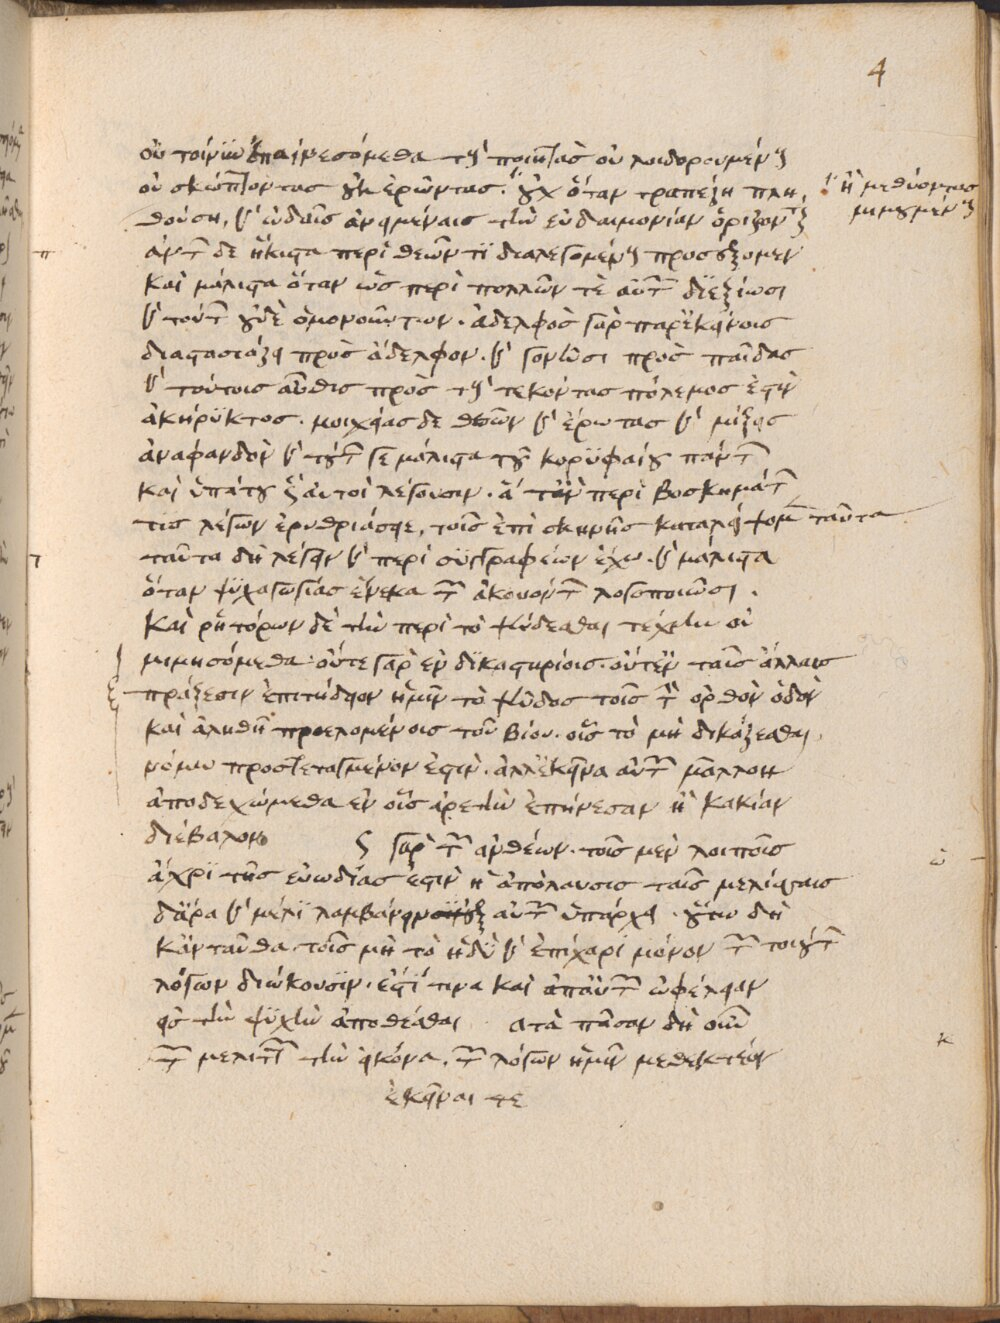 4
οὐ τοίνυν ἐπαινεσόμεθα τοὺς ποιητὰς οὐ λοιδορουμένους
οὐ σκώπτοντας οὐκ ἐρῶντας. οὐχ ὅταν τραπέζῃ πλη
ἢ μεθύοντας
μιμουμένους
θούσῃ, καὶ ᾠδαῖς ἀνειμέναις τὴν εὐδαιμονίαν ὁρίζοντας
πάντων δὲ ἥκιστα περὶ θεῶν τι διαλεγομένοις προσέξομεν
καὶ μάλιστα ὅταν ὡς περὶ πολλῶν τὲ αὐτῶν διεξίωσι
καὶ τούτων οὐδὲ ὁμονοούντων. ἀδελφὸς γὰρ παρ' ἐκείνοις
διαστασιάζει πρὸς ἀδελφόν. καὶ γονεῦσι πρὸς παῖδας
καὶ τούτοις αὖθις πρὸς τοὺς τεκόντας πόλεμός ἐστιν
ἀκήρυκτος. μοιχείας δὲ θεῶν καὶ ἔρωτας καὶ μίξεις
ἀναφανδὸν καὶ τούτων γε μάλιστα τοῦ κορυφαίου πάντων
καὶ ὑπάτου ὃ αὐτοὶ λέγουσιν. ἃ τὰν περὶ βοσκημάτων
τις λέγων ἐρυθριάσειε, τοῖς ἐπὶ σκηνῆς καταλείψομεν ταῦτα
ταῦτα δὴ λέγειν καὶ περὶ συγγραφέων ἔχω. καὶ μάλιστα
ὅταν ψυχαγωγίας ἕνεκα τῶν ἀκουόντων λογοποιῶσι.
Καὶ ῥητόρων δὲ τὴν περὶ τὸ ψεύδεσθαι τέχνην οὐ
μιμησόμεθα. οὔτε γὰρ ἐν δικαστηρίοις. οὔτ' ἐν ταῖς ἄλλαις
πράξεσιν ἐπιτήδειον ἡμῖν τὸ ψεῦδος τοῖς τὴν ὀρθὴν ὁδὸν
καὶ ἀληθῆ προελομένοις τοῦ βίου. οἷς τὸ μὴ δικάζεσθαι
νόμῳ προστεταγμένον ἐστίν. ἀλλ' ἐκεῖνα αὐτῶν μᾶλλον
ἀποδεξώμεθα ἐν οἷς ἀρετὴν ἐπῄνεσαν ἢ κακίαν
διέβαλον ς γὰρ τῶν ἀνθέων. τοῖς μὲν λοιποῖς
ὡ
ἄχρι τῆς εὐωδίας ἐστὶν ἡ ἀπόλαυσις ταῖς μελίτταις
δ' ἄρα καὶ μέλι λαμβάνειν αὐτῶν ὑπάρχει. οὕτω δὴ
κἀνταῦθα τοῖς μὴ τὸ ἡδὺ καὶ ἐπίχαρι μόνον τῶν τοιούτων
λόγων διώκουσιν. ἔστι τινὰ καὶ ἀπ' αὐτῶν ὠφέλειαν
εἰς τὴν ψυχὴν ἀποθέσθαι ατὰ πᾶσαν δὴ οὖν
κ
τῶν μελιττῶν τὴν εἰκόνα. τῶν λόγων ἡμῖν μεθεκτέον
ἐκεῖναί τε